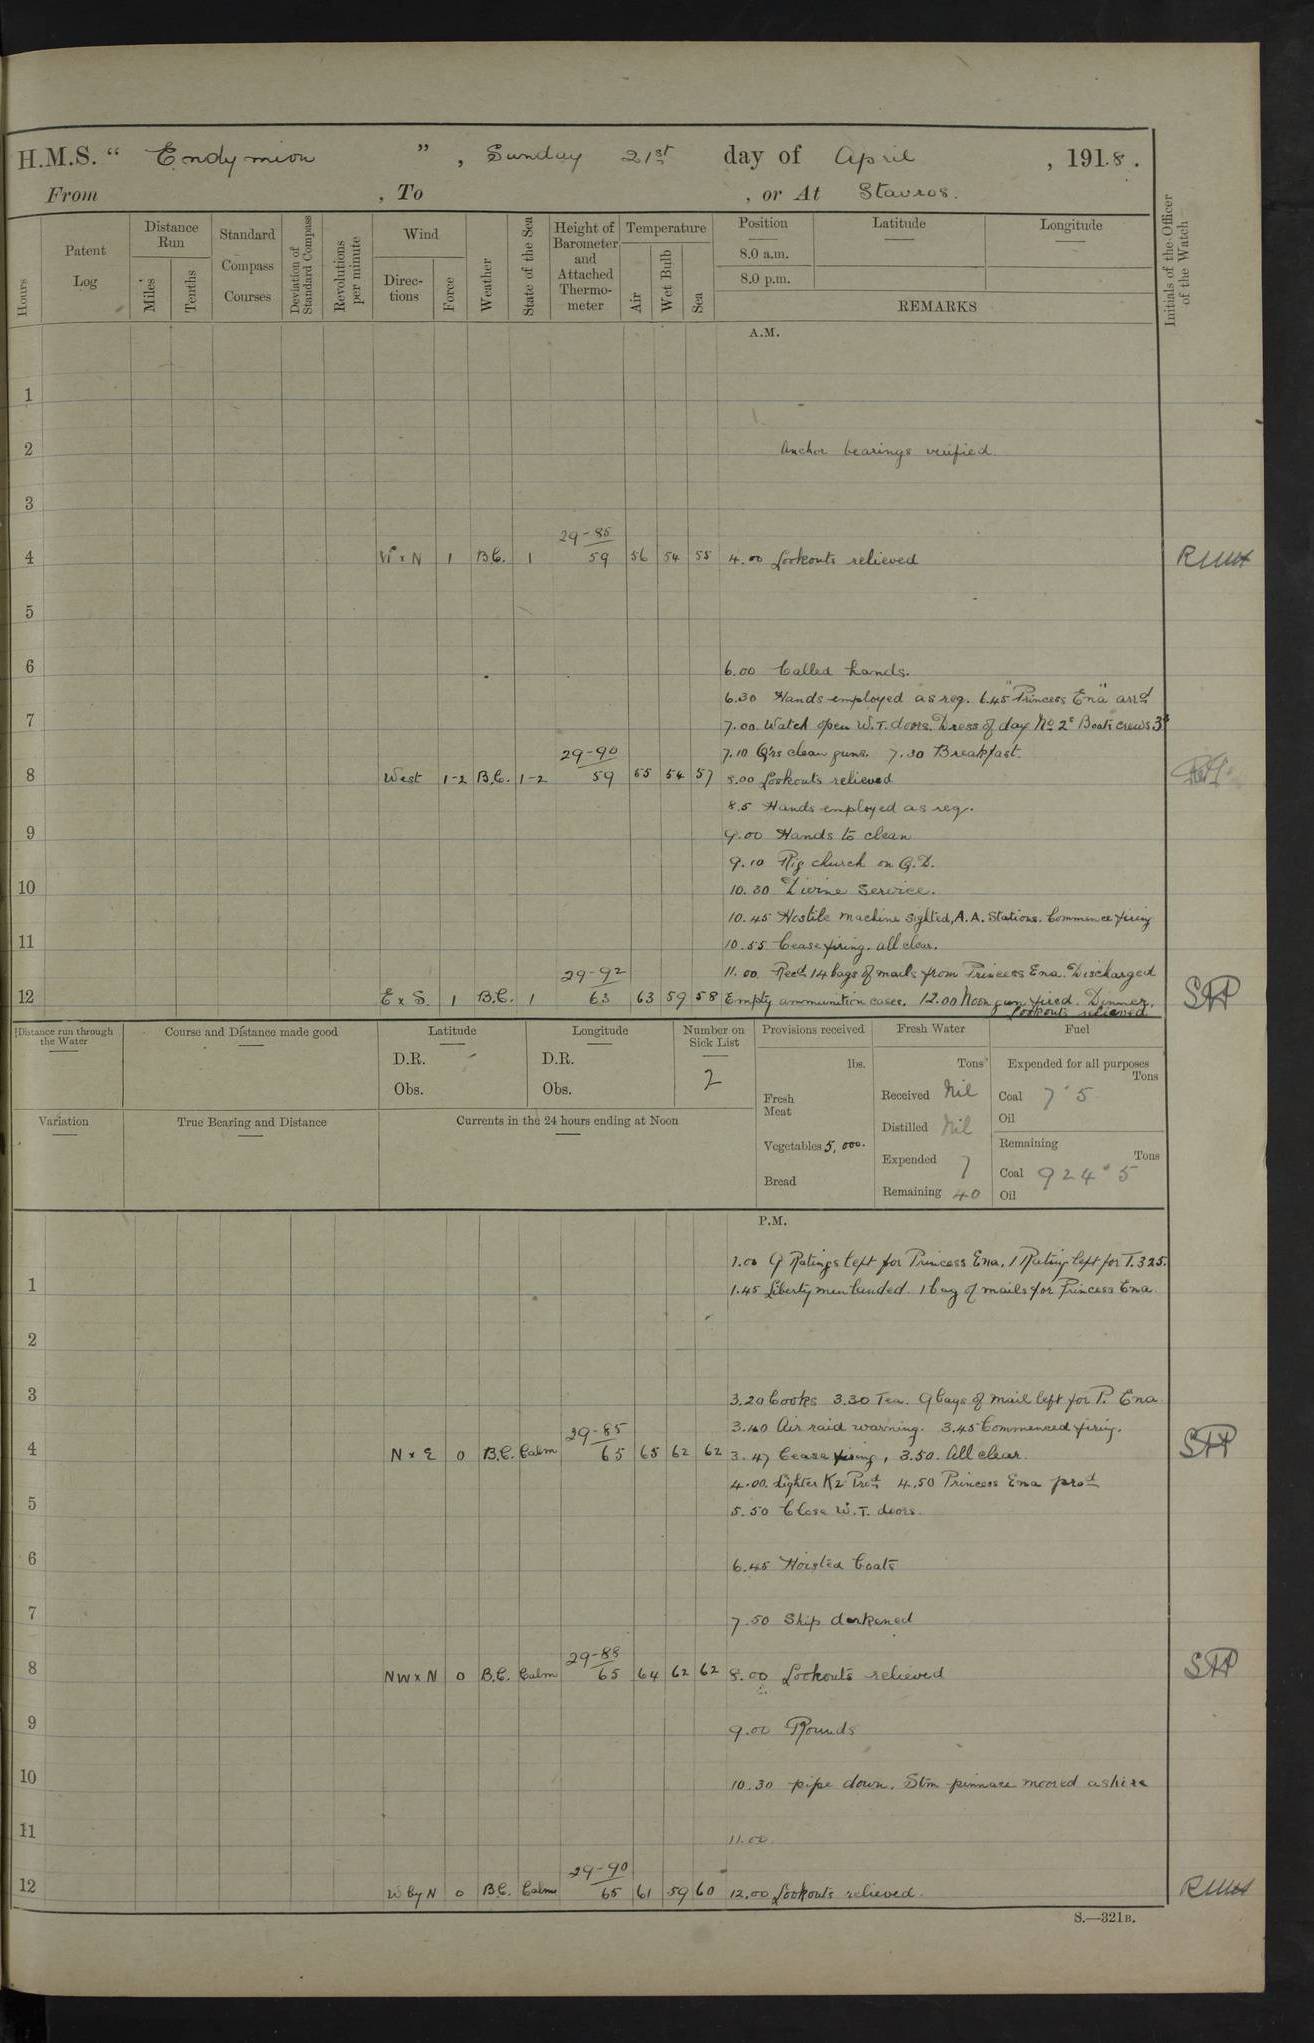 H.M.S. “ Endymion ” , Sunday 21st day of April , 1918 .
From , To , or At Stavros.
Hours
Patent Log
Distance Run
Miles
Tenths
Standard Compass Courses
Deviation of Standard Compass
Revolutions per minute
Wind
Directions
Force
Weather
State of the Sea
Height of Barometer and Attached Thermometer
Temperature
Air
Wet Bulb
Sea
Position
8.0 a.m.
8.0 p.m.
Latitude
Longitude
REMARKS
Initials of the Officer of the Watch
A.M.
1
2 Anchor bearings verified
3
29-85
4 W x N 1 B.C. 1 59 56 54 55 4.00 Lookouts relieved
5
6 6.00 Called hands.
6.30 Hands employed as req. 6.45 "Princess Ena" arrd
7 7.00 Watch open W.T. doors. Dress of day No 2s Boats crews 3s
29-90 7.10 Q'rs clean guns. 7.30 Breakfast.
8 West 1-2 B.C. 1-2 59 55 54 57 8.00 Lookouts relieved
8.5 Hands employed as req.
9 9.00 Hands to clean
9.10 Rig church on Q.D.
10 10.30 Divine Service.
10.45 Hostile machine sighted, A.A. Stations. Commence firing
11 10.55 Cease firing. All clear.
29-92 11.00 Recd. 14 bags of mails from Princess Ena. Discharged
12 E x S. 1 B.C. 1 63 63 59 58 Empty ammunition cases. 12.00 Noon gun fired. Dinner.
Lookouts relieved
Distance run through the Water
Course and Distance made good
Latitude
D.R.
Obs.
Longitude
D.R.
Obs.
Number on Sick List
2
Provisions received
lbs.
Fresh Meat
Vegetables 5,000.
Bread
Fresh Water
Tons
Received Nil
Distilled Nil
Expended 7
Remaining 40
Fuel
Expended for all purposes
Tons
Coal 7.5
Oil
Remaining
Tons
Coal 924.5
Oil
Variation
True Bearing and Distance
Currents in the 24 hours ending at Noon
P.M.
1.00 9 Ratings left for Princess Ena. 1 Rating left for T.325.
1 1.45 Liberty men landed. 1 bag of mails for Princess Ena.
2
3 3.20 Cooks 3.30 Tea. 9 bags of mail left for P. Ena
29-85 3.40 Air raid warning. 3.45 Commenced firing.
4 N x E 0 B.C. Calm 65 65 62 62 3.47 Cease firing, 3.50. All clear.
4.00. Lighter K2 Procd 4.50 Princess Ena procd
5 5.50 Close W.T. doors.
6 6.45 Hoisted boats
7 7.50 Ship darkened
29-88
8 NW x N 0 B.C. Calm 65 64 62 62 8.00 Lookouts relieved
9 9.00 Rounds
10 10.30 pipe down. Stm pinnace moored
11 11.00
29-90
12 W by N 0 B.C. Calm 65 61 59 60 12.00 Lookouts relieved.
S.—321B.